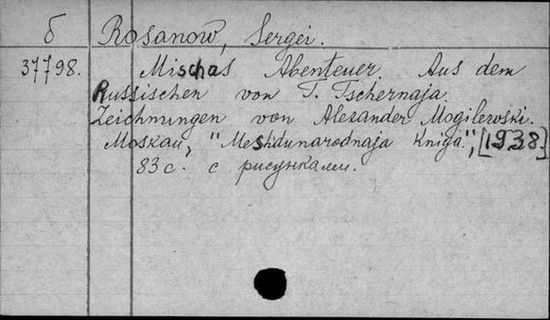 б Rosanow, Sergei.
37798. Mischas Abenteuer. Aus dem
Russischen von T. Tschernaja.
Zeichnungen von Alexander Mogilewski.
Moskau, "Meshdunarodnaja Kniga", [1938.]
83 с. с рисунками.